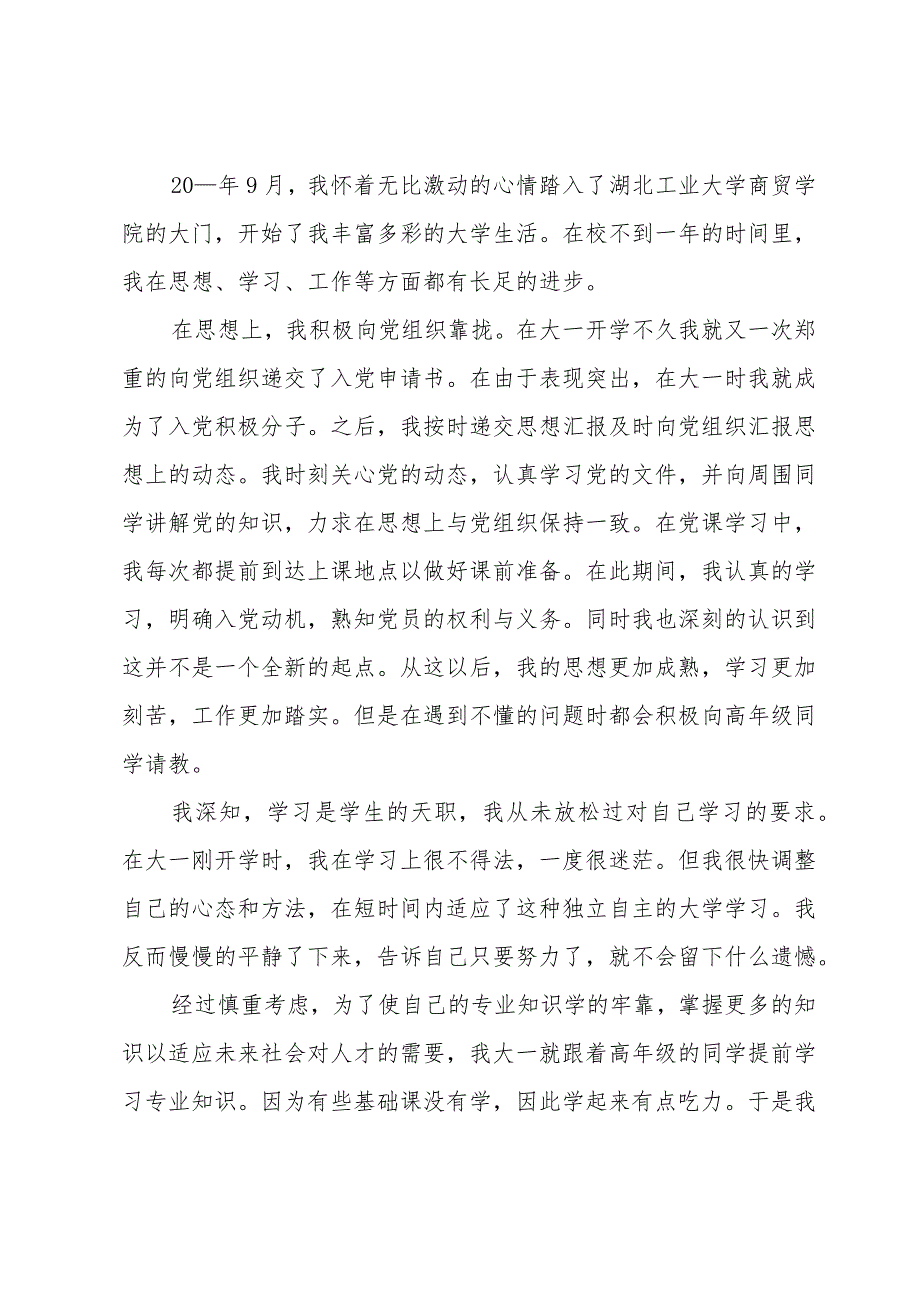 20—年9月，我怀着无比激动的心情踏入了湖北工业大学商贸学
院的大门，开始了我丰富多彩的大学生活。在校不到一年的时间里，
我在思想、学习、工作等方面都有长足的进步。
在思想上，我积极向党组织靠拢。在大一开学不久我就又一次郑
重的向党组织递交了入党申请书。在由于表现突出，在大一时我就成
为了入党积极分子。之后，我按时递交思想汇报及时向党组织汇报思
想上的动态。我时刻关心党的动态，认真学习党的文件，并向周围同
学讲解党的知识，力求在思想上与党组织保持一致。在党课学习中，
我每次都提前到达上课地点以做好课前准备。在此期间，我认真的学
习，明确入党动机，熟知党员的权利与义务。同时我也深刻的认识到
这并不是一个全新的起点。从这以后，我的思想更加成熟，学习更加
刻苦，工作更加踏实。但是在遇到不懂的问题时都会积极向高年级同
学请教。
我深知，学习是学生的天职，我从未放松过对自己学习的要求。
在大一刚开学时，我在学习上很不得法，一度很迷茫。但我很快调整
自己的心态和方法，在短时间内适应了这种独立自主的大学学习。我
反而慢慢的平静了下来，告诉自己只要努力了，就不会留下什么遗憾。
经过慎重考虑，为了使自己的专业知识学的牢靠，掌握更多的知
识以适应未来社会对人才的需要，我大一就跟着高年级的同学提前学
习专业知识。因为有些基础课没有学，因此学起来有点吃力。于是我